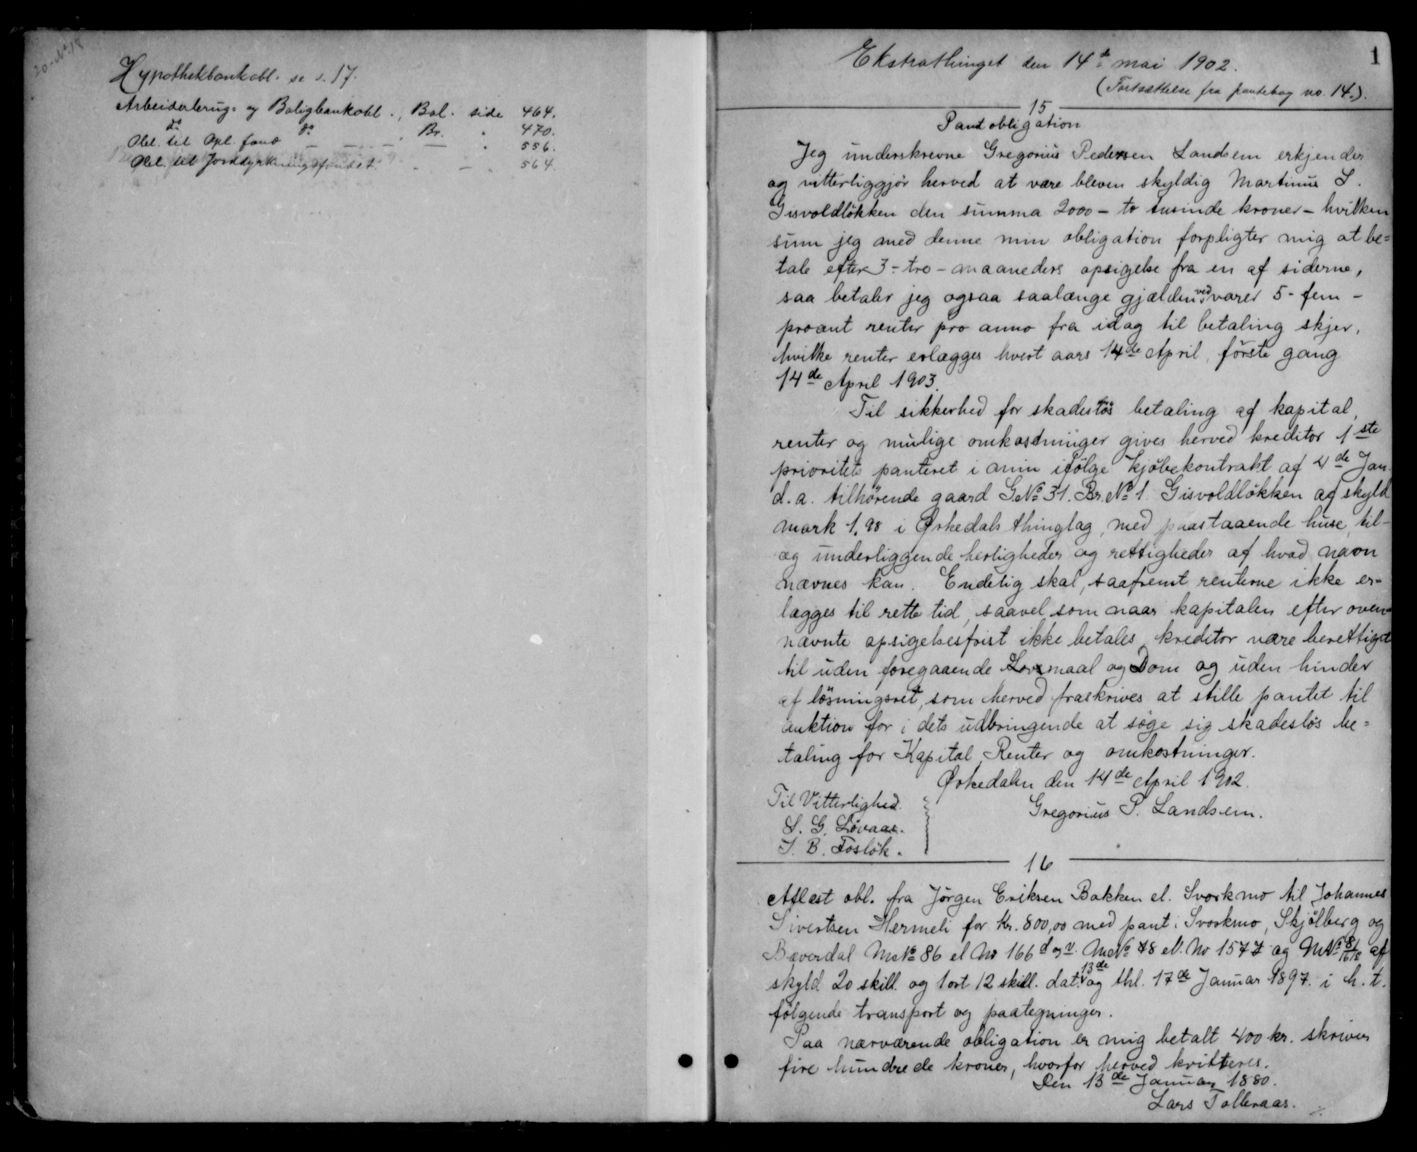 20. No 18
Hypothekbankobl. se s. 17.
Arbeiderbrug- og Boligbankobl., Bol. side 464.
do do, Br. " 470.
Obl. til Opl. fond — — — " 556.
Obl. til Jorddyrkningsfondet. - — - 564.
1
Ekstrathinget den 14de mai 1902.
(Fortsættelse fra pantebog no. 14.).
15
Pantobligation
Jeg underskrevne Gregorius Pedersen Landsem erkjender
og vitterliggjør herved at være bleven skyldig Martinus S.
Gisvoldløkken den summa 2000 - to tusinde kroner - hvilken
sum jeg med denne min obligation forpligter mig at be=
tale efter 3 - tre - maaneders opsigelse fra en af siderne,
saa betaler jeg ogsaa saalænge gjælden vedvarer 5 - fem -
procent renter pro anno fra idag til betaling skjer,
hvilke renter erlægges hvert aars 14de April, første gang
14de April 1903.
Til sikkerhed for skadesløs betaling af kapital,
renter og mulige omkostninger gives herved kreditor 1ste
prioritets panteret i min ifølge kjøbekontrakt af 4de Jan.
d.a. tilhørende gaard GNo 31. Br. No 1. Gisvoldløkken af skyld
mark 1,98 i Ørkedals thinglag, med paastaaende huse, til-
og underliggende herligheder og rettigheder af hvad navn
nævnes kan. Endelig skal, saafremt renterne ikke er=
lægges til rette tid, saavel som naar kapitalen efter oven=
nævnte opsigelsesfrist ikke betales, kreditor være berettiget
til uden foregaaende Lovmaal og Dom og uden hinder
af løsningsret, som herved fraskrives at stille pantet til
auktion for i dets udbringende at søge sig skadesløs be=
taling for Kapital, Renter og omkostninger.
Ørkedalen den 14de April 1902.
Til Vitterlighed.
Gregorius P. Landsem.
S. G. Løvaas.
J. B. Fosløk.
16
Aflæst obl. fra Jørgen Eriksen Bakken el. Svorkmo til Johannes
Sivertsen Hermeli for Kr. 800,00 med pant i Svorkmo, Skjølberg og
Bæverdal MNo 86 el No 166d og MNo 78 el. No 157 og MNo af
skyld 20 skill. og 1 ort 12 skill. dat. 13de og thl. 17de Januar 1897. i h. t.
følgende transport og paategninger.
Paa nærværende obligation er mig betalt 400 kr. skriver
fire hundrede kroner, hvorfor herved kvitteres.
Den 13de Januar 1880.
Lars Tolleraas.